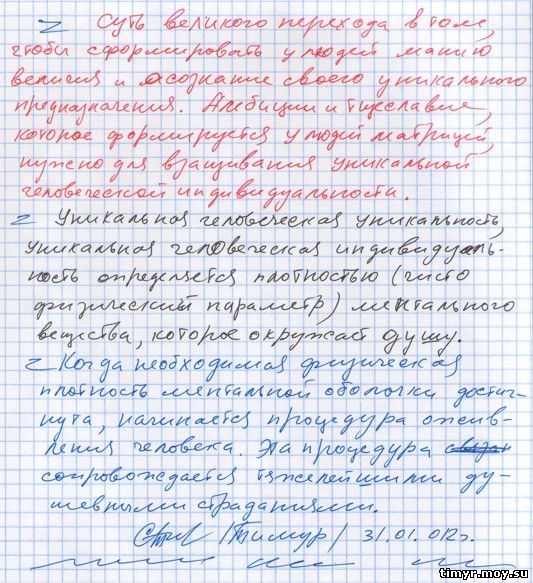 Суть великого перехода в том,
чтобы сформировать у людей манию
величия и осознание своего уникального
предназначения. Амбиции и тщеславие,
которое формируется у людей матрицей,
нужно для взращивания уникальной
человеческой индивидуальности.
Уникальная человеческая уникальность,
уникальная человеческая индивидуаль-
ность определяется плотностью (чисто
физический параметр) ментального
вещества, которое окружает душу.
Когда необходимая физическая
плотность ментальной оболочки достиг-
нута, начинается процедура оживв-
ления человека. Эта процедура
сопровождается тяжелейшими ду-
шевными страданиями.
/Тимур/ 31.01.012г.
timyr.moy.su